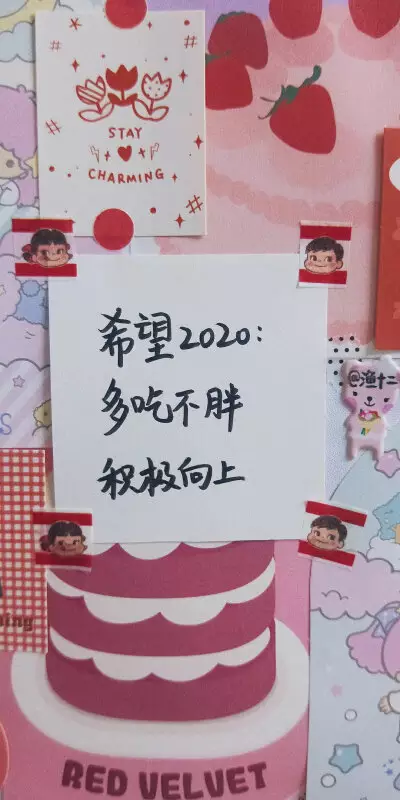 STAY
CHARMING
希望2020:
多吃不胖
积极向上
@渔十二
RED VELVET